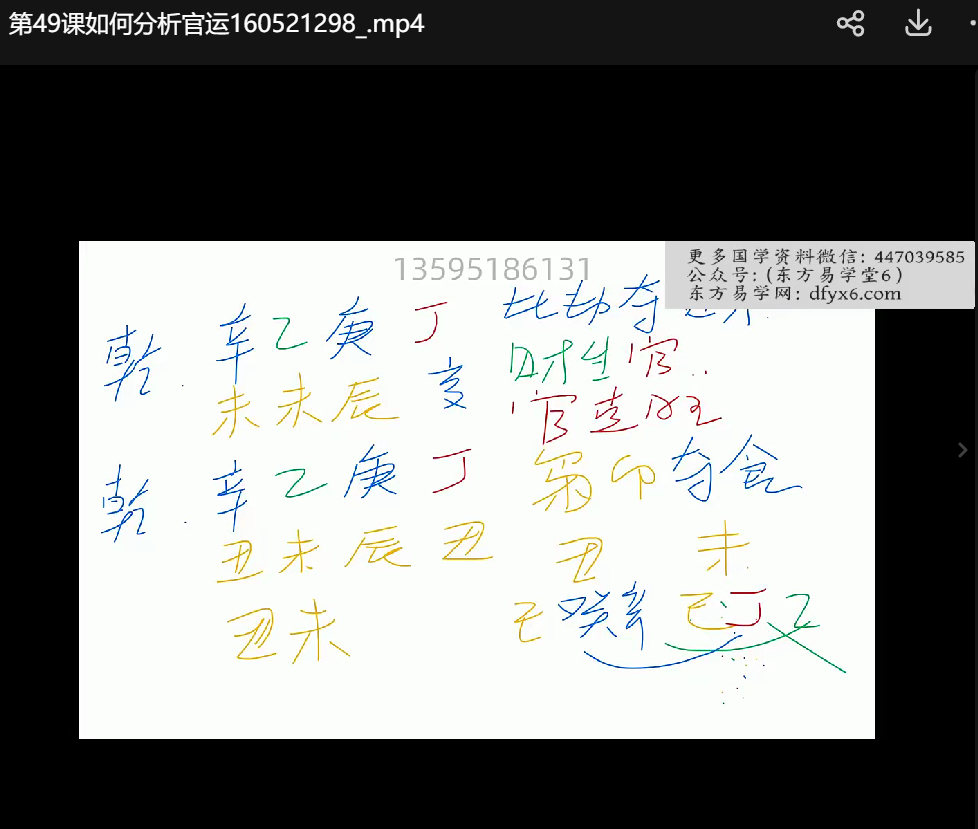 第49课如何分析官运160521298_.mp4
更多国学资料微信: 447039585
公众号:(东方易学堂6)
东方易学网: dfyx6.com
13595186131
乾 辛乙庚丁 比劫夺
未未辰亥 财生官
官克
乾 辛乙庚丁 卯夺食
丑未辰丑 丑 未
丑未 己癸辛 己丁乙